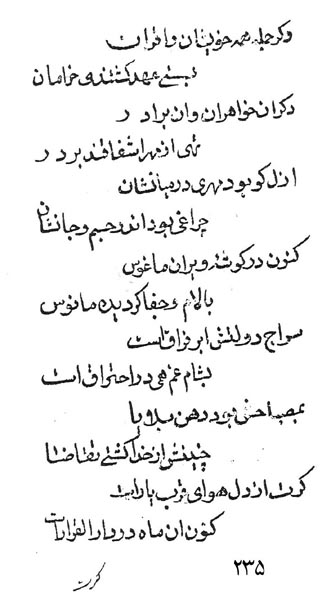 وکر جمله همه خویشان و اقران
بستی عهد کشتندی خرامان
دکران خواهران وان برادر
تهی از مهر اشفاقند بر در
ازل کو بود مهری در میانشان
چراغی بود اندر جسم و جانشان
کنون در کوشه ویران ماغوس
بالام و جفا کردیده مانوس
سراج دولتش ابر فراق است
بشام غم همی در احتراق است
بود رهن بلایا
چنینش از خدا کشتی تقاضا
کرت از دل هوای قرب یار است
کنون ان ماه در دار القرار است
۲۳۵
کرت